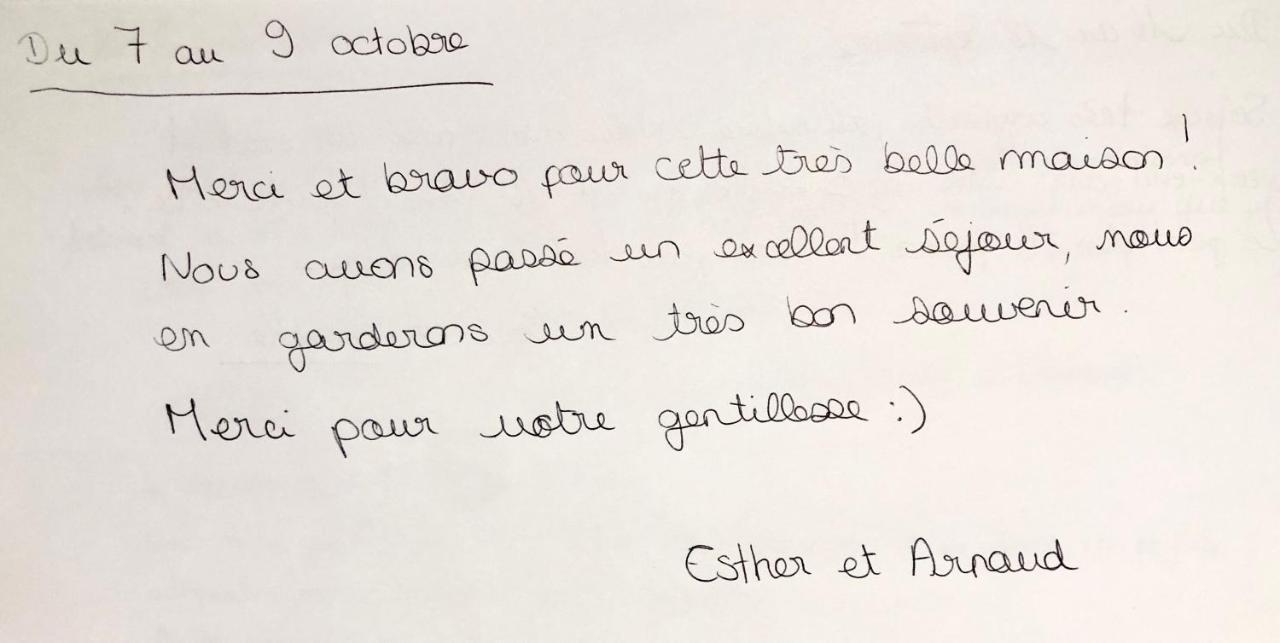 Du 7 au 9 octobre
Merci et bravo pour cette très belle maison !
Nous avons passé un excellent séjour, nous
en garderons un très bon souvenir.
Merci pour votre gentillesse :)
Esther et Arnaud